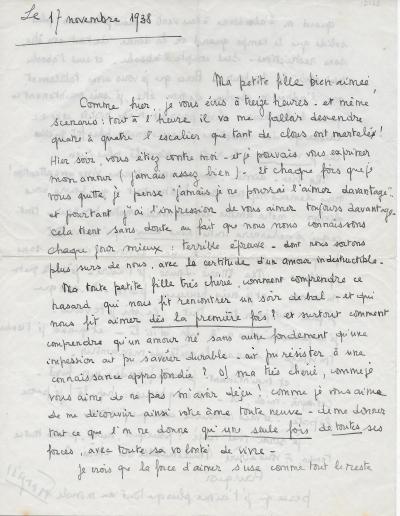 Le 17 novembre 1938
Ma petite fille bien aimée,
Comme hier, je vous écris à treize heures - et même
scenario : tout à l'heure il va me falloir descendre
quatre à quatre l'escalier que tant de clous ont martelés!
Hier soir, vous étiez contre moi - et je pouvais vous exprimer
mon amour (jamais assez bien) - et chaque fois que je
vous quitte, je pense "jamais je ne pourrai l'aimer davantage" -
et pourtant j'ai l'impression de vous aimer toujours davantage -
cela tient sans doute au fait que nous nous connaissons
chaque jour mieux : terrible épreuve - dont nous sortons
plus surs de nous, avec la certitude d'un amour indestructible.
Ma toute petite fille très chérie, comment comprendre ce
hasard qui nous fit rencontrer un soir de bal - et qui
nous fit aimer dès la première fois? et surtout comment
comprendre qu'un amour né sans autre fondement qu'une
impression ait pu s'avérer durable - ait pu résister à une
connaissance approfondie? O! ma très chérie, comme je
vous aime de ne pas m'avoir déçu! comme je vous aime
de me découvrir ainsi votre âme toute neuve - de me donner
tout ce que l'on ne donne qu'une seule fois de toutes ses
forces, avec toute sa volonté de vivre -
Je crois que la force d'aimer s'use comme tout le reste